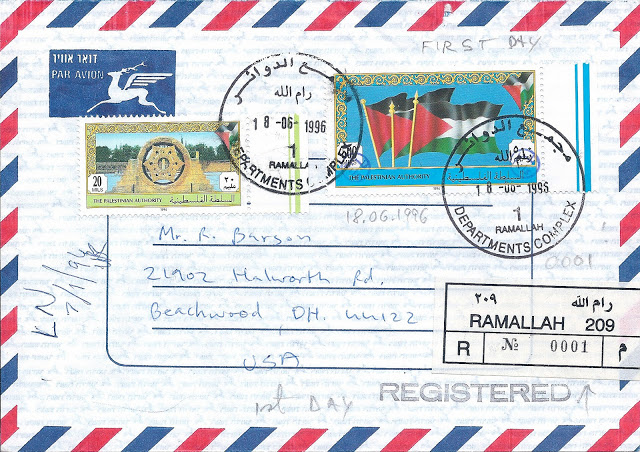 דואר אוויר
PAR AVION
FIRST DAY
مجمع الدوائر
رام الله
18-06-1996
1
RAMALLAH
DEPARTMENTS COMPLEX
20
MILLS
٢٠
THE PALESTINIAN AUTHORITY
السلطة الفلسطينية
THE PALESTINIAN AUTHORITY
السلطة الفلسطينية
مجمع الدوائر
رام الله
18-06-1996
1
RAMALLAH
DEPARTMENTS COMPLEX
18.06.1996
0001
Mr. R. Barson
21902 Halworth Rd.
Beachwood, OH. 44122
USA
٢٠٩ رام الله
RAMALLAH 209
R № 0001 م
1st DAY
REGISTERED